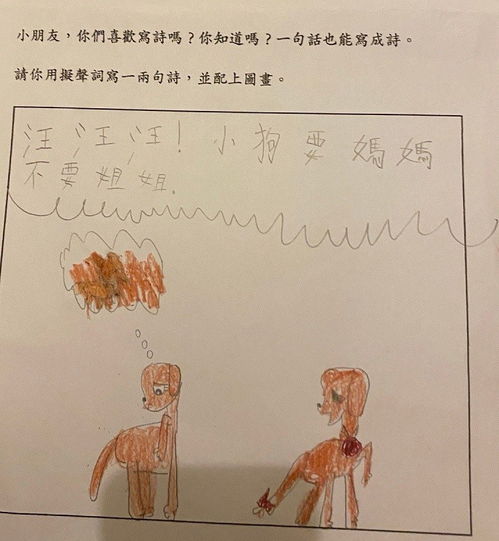 小朋友，你們喜歡寫詩嗎？你知道嗎？一句話也能寫成詩。
請你用擬聲詞寫一兩句詩，並配上圖畫。
汪汪汪！小狗要媽媽
不要姐姐.